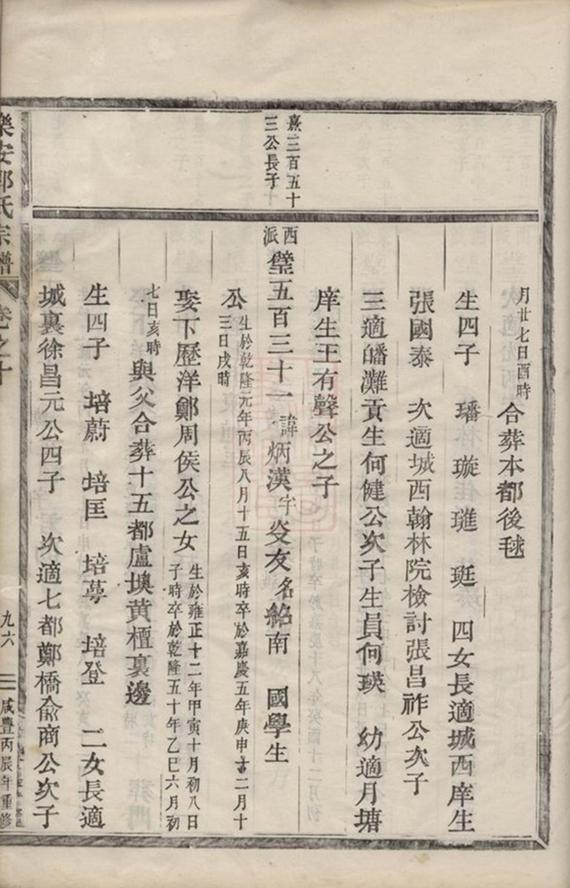 熹三百五十
三公長子
月廿七日酉時 合葬本都後毬
生四子 璠 璇 璡 珽 四女長適城西庠生
張國泰 次適城西翰林院檢討張昌祚公次子
三適皤灘貢生何健公次子生員何瑛 幼適月塘
庠生王有聲公之子
西派 璧五百三十一 諱炳漢 字 友 名 南 國學生
公 生於乾隆元年丙辰八月十五日亥時卒於嘉慶五年庚申十二月十
三日戌時
娶下歷洋鄭周侯公之女 生於雍正十二年甲寅十月初八日
子時卒於乾隆五十年乙巳六月初
七日亥時 與父合葬十五都盧墺黃檀裏邊
生四子 培蔚 培匡 培蕚 培登 二女長適
城裏徐昌元公四子 次適七都鄭橋俞商公次子
樂安郭氏宗譜 卷之十 九六 咸豐丙辰年重修